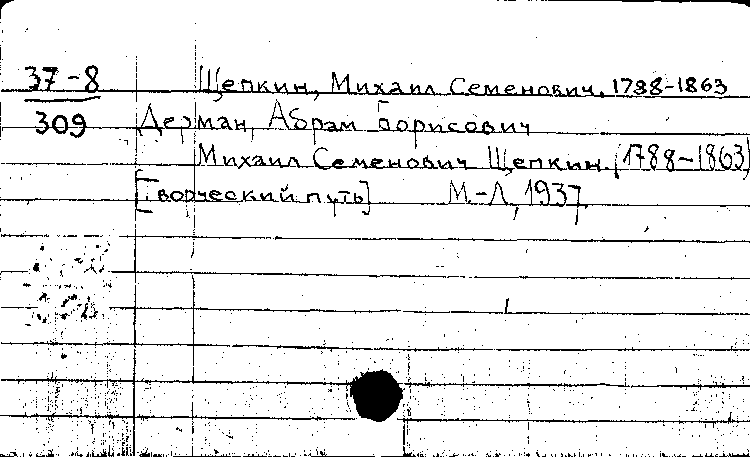 37-8 Щепкин, Михаил Семенович, 1788-1863
309 Дерман, Абрам Борисович
Михаил Семенович Щепкин. (1788-1863)
[Творческий путь] М-Л, 1937.